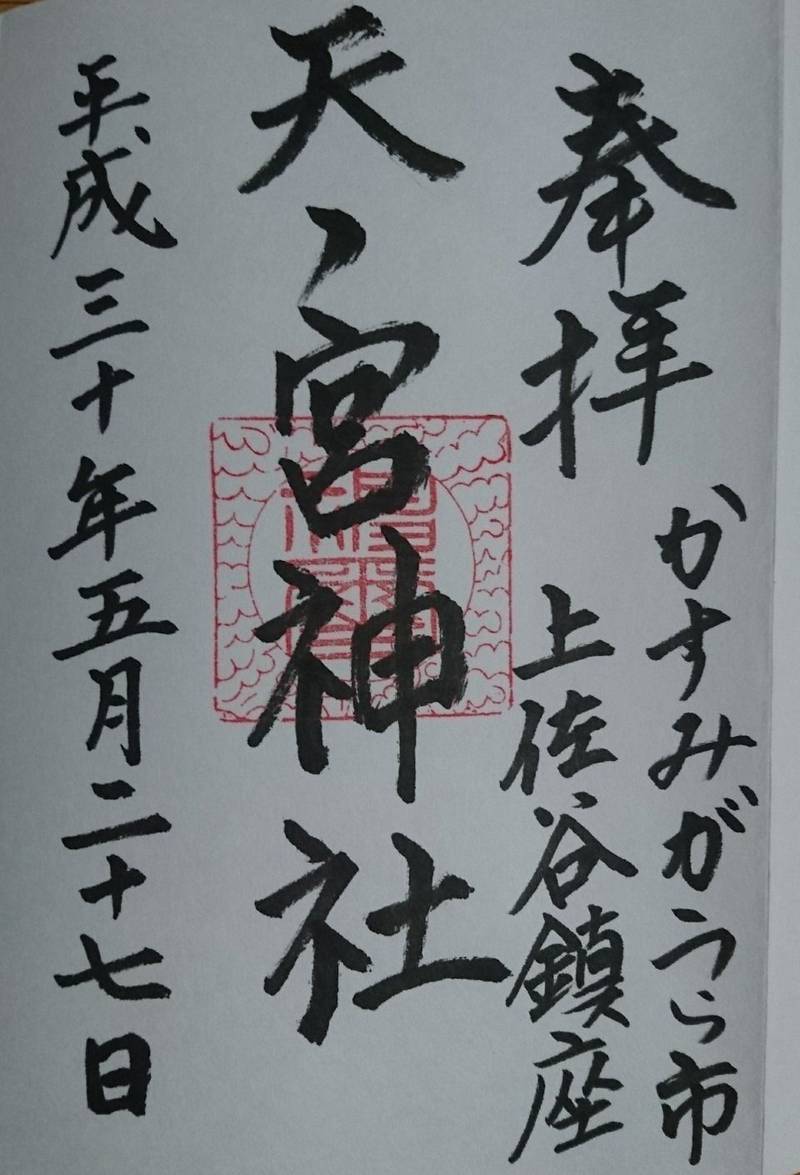 奉拝
かすみがうら市
上佐谷鎮座
天ノ宮神社
平成三十年五月二十七日